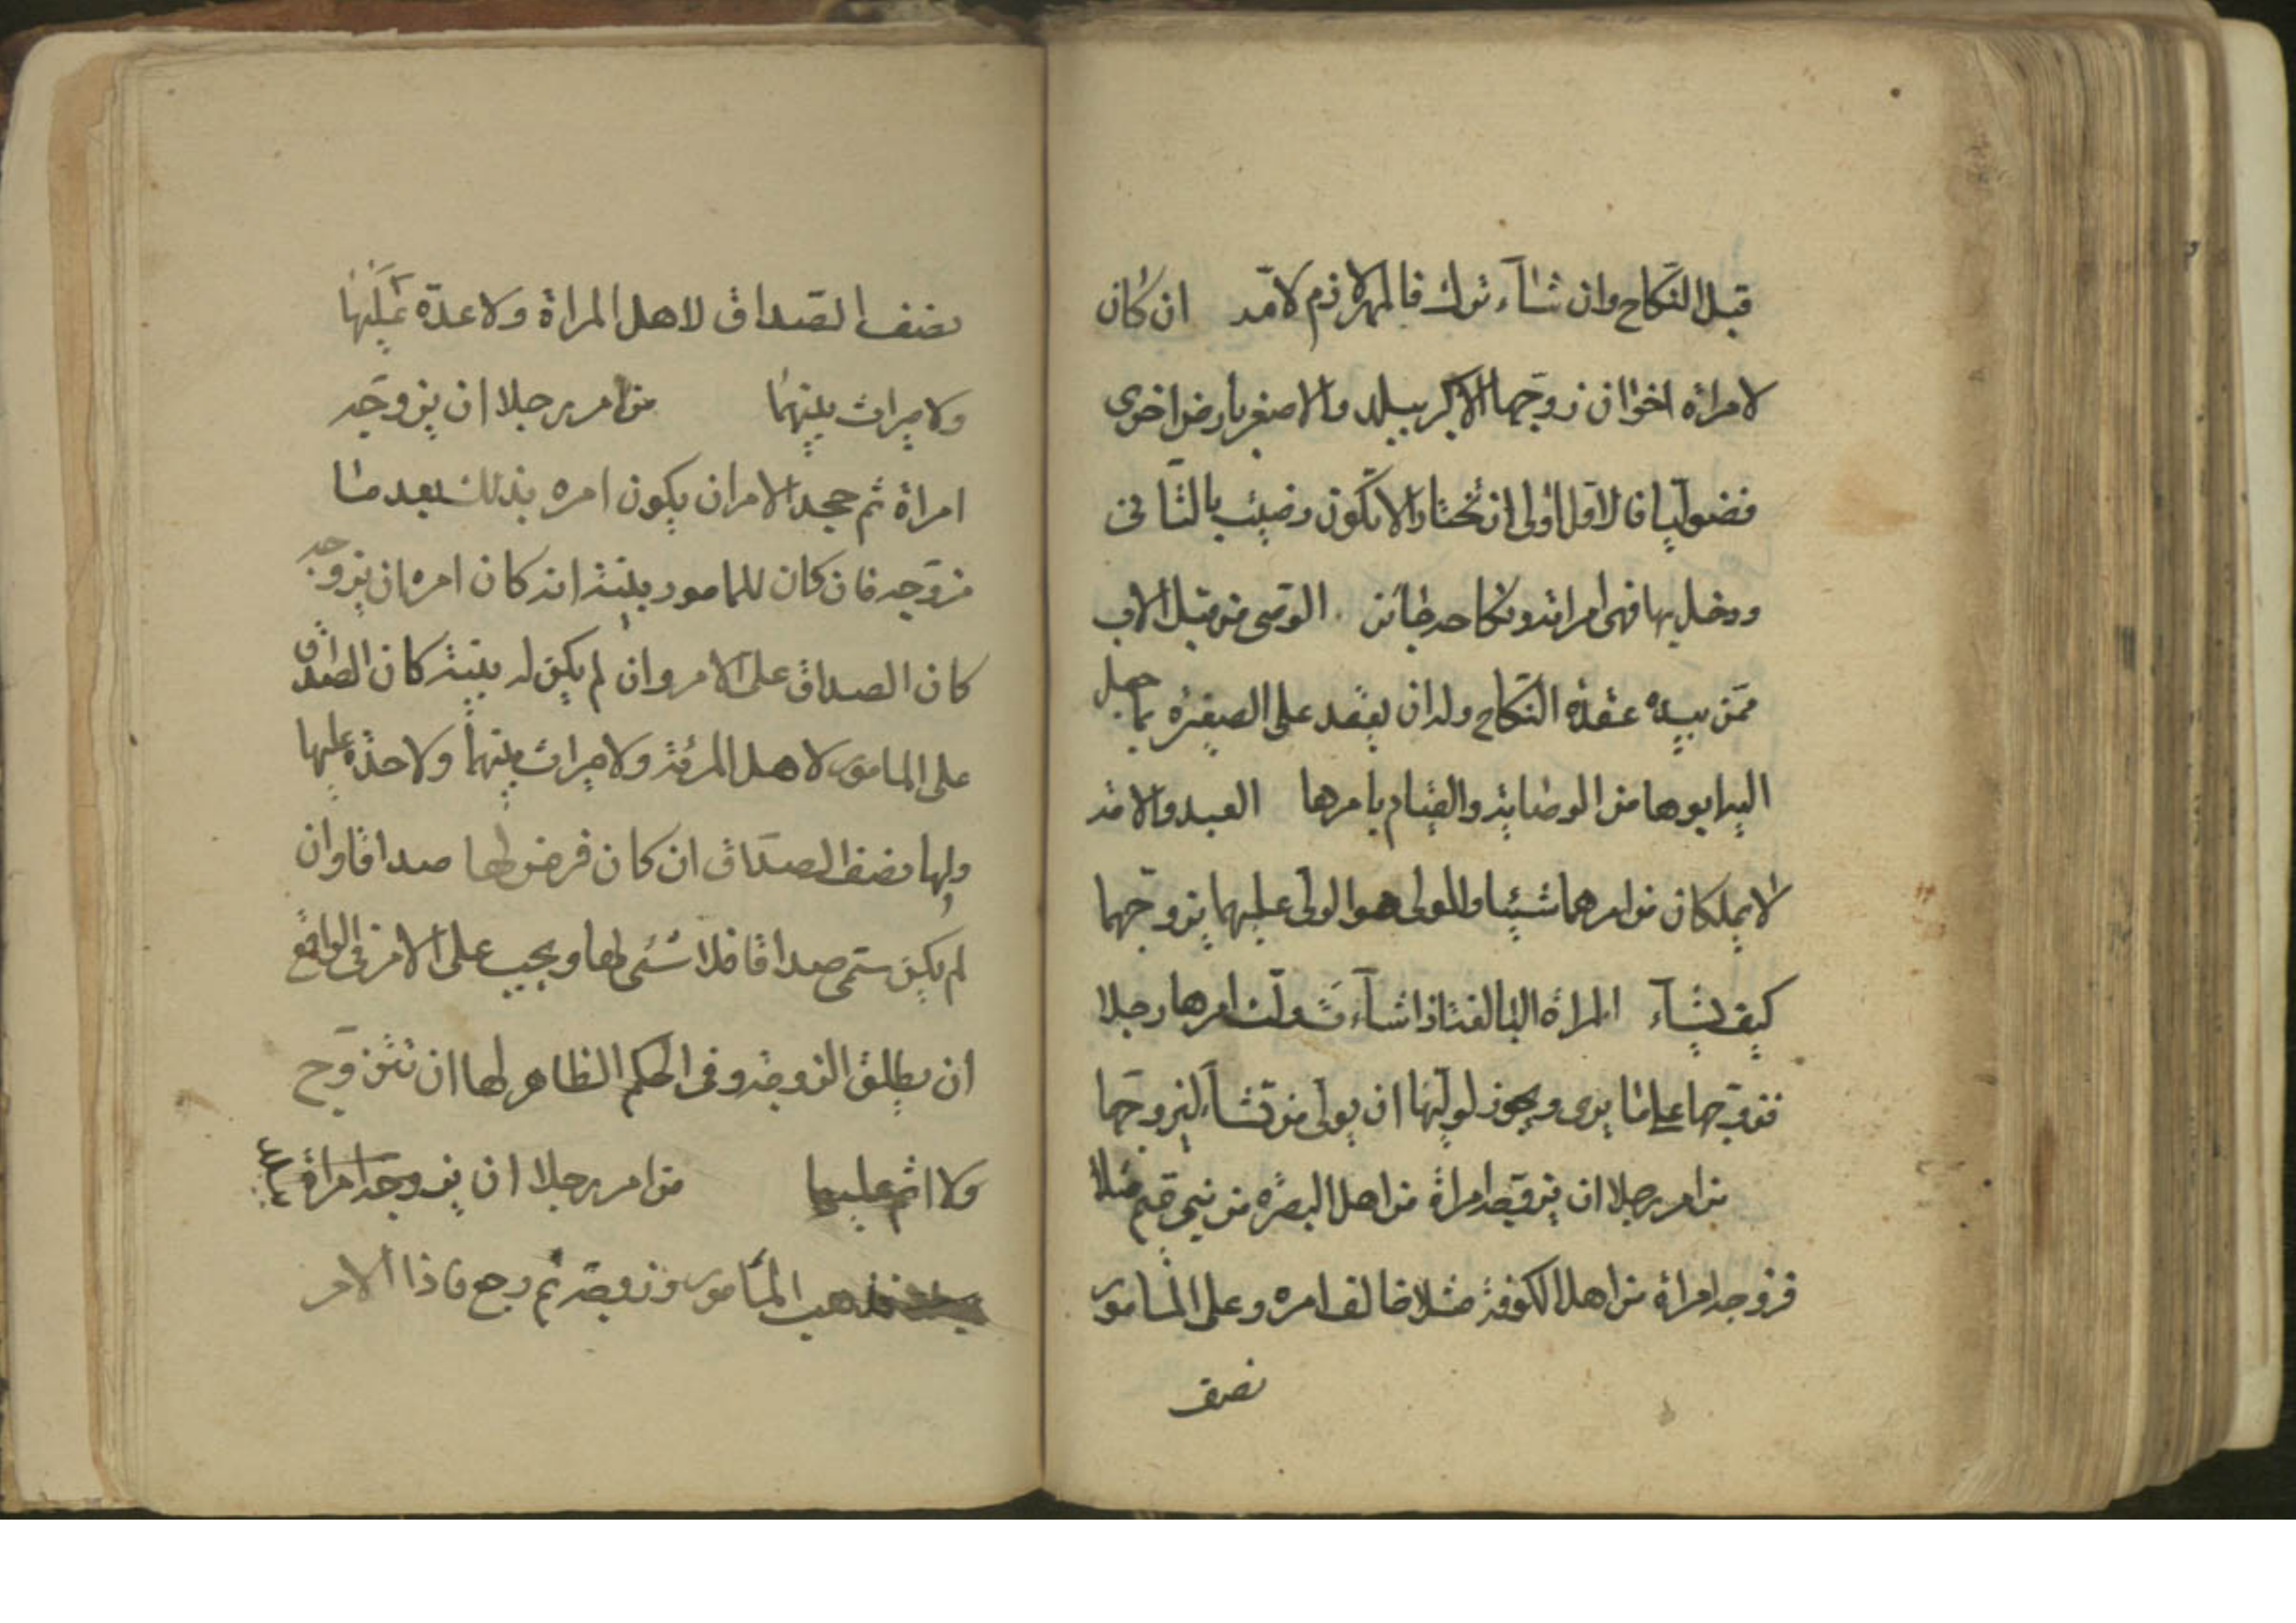 قبل النكاح وان شاء ترك فالمهر لازم لامه ان كان
لامراة اخوان زوجها الاكبر ببلد والاصغر بارض اخرى
فضوليا فالاول اولى ان تختار الا تكون رضيت بالثاني
ودخل بها فهي امراته ونكاحه جائز الوصي من قبل الاب
ممن بيده عقدة النكاح وله ان يعقد على الصغيرة بما جعل
اليه ابوها من الوصاية والقيام بامرها العبد والامة
لا يملكان من امرهما شيئا والمولى هو الولي عليهما يزوجهما
كيف يشاء المراة البالغة اذا شاءت ولت امرها رجلا
فزوجها على ما يرى ويجوز لوليها ان يولى من تشاء ليزوجها
من امر رجلا ان يزوجه امراة من اهل البصرة من بني تميم مثلا
فزوجه امراة من اهل الكوفة مثلا خالف امره وعلى المامور
نصف
نصف الصداق لاهل المراة ولا عدة عليها
ولا ميراث بينهما من امر رجلا ان يزوجه
امراة ثم جحد الامر ان يكون امره بذلك بعد ما
زوجه فان كان للمامور بينة انه كان امره ان يزوجه
كان الصداق على الامر وان لم يكن له بينة كان الصداق
على المامور لاهل المرئة ولا ميراث بينهما ولا عدة عليها
ولها نصف الصداق ان كان فرض لها صداقا وان
لم يكن سمى صداقا فلا شئ لها ويجب على الامر في الواقع
ان يطلق الزوجة وفي الحكم الظاهر لها ان تتزوج
ولا اثم عليها من امر رجلا ان يزوجه امراة
فذهب المامور وزوجه ثم رجع فاذا الامر